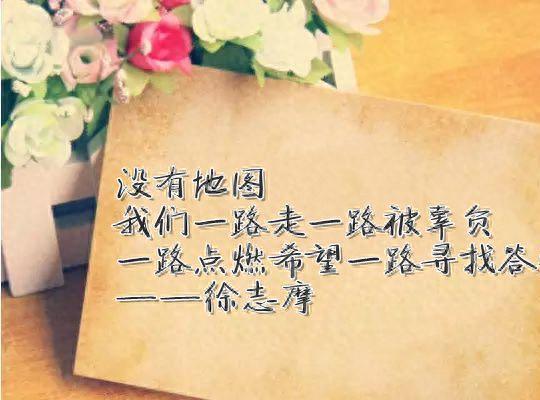 没有地图
我们一路走一路被辜负
一路点燃希望一路寻找答
——徐志摩